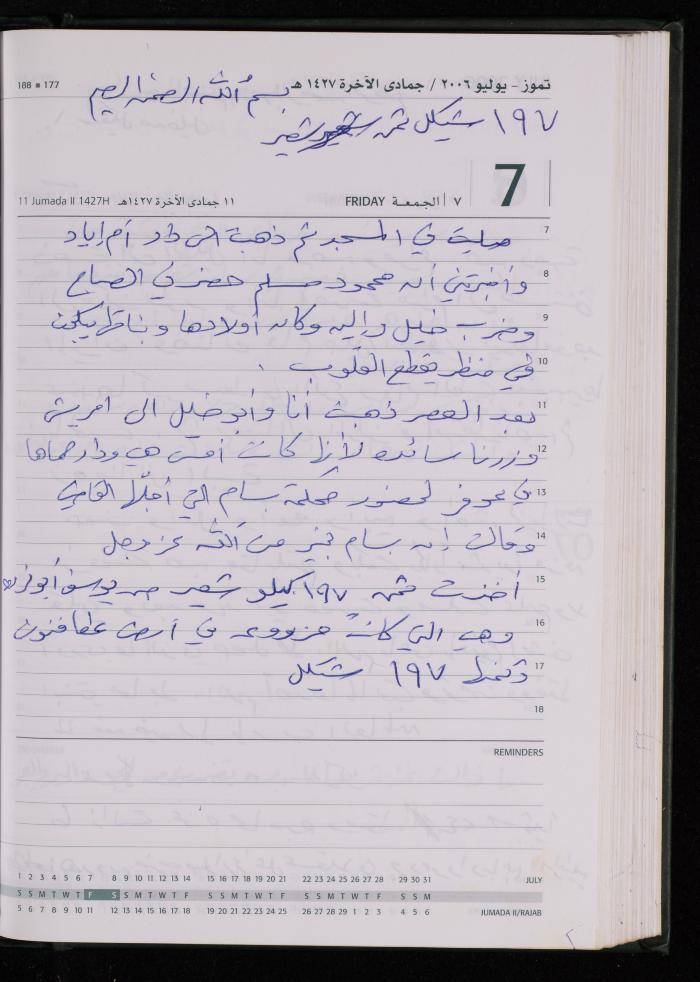 188 ▪ 177
تموز - يوليو ٢٠٠٦ / جمادى الآخرة ١٤٢٧ هـ
بسم الله الرحمن الرحيم
١٩٧ شيكل ثمن شعير
7
11 Jumada II 1427H ١١ جمادى الآخرة ١٤٢٧هـ FRIDAY الجمعة ٧
7 صليت في المسجد ثم ذهبت الى دار أم إياد
8 وأخبرتني أن محمود مسلم حضر في الصباح
9 وضرب خليل واليه وكان أولادها وبناتها يبكون
10 في منظر يقطع القلوب .
11 بعد العصر ذهبت أنا وأبو خليل الى امريش
12 وزرنا سائده لأنها كانت أمس هي ودار حماها
13 في عوفر لحضور محكمة بسام التي أجلها القاضي
14 وقالت إن بسام بخير من الله عز وجل
15 أخذت ثمن ١٩٧ كيلو شعير من يوسف أبو
16 وهي التي كانت مزروعه في أرض
17 وثمنها ١٩٧ شيكل
18
REMINDERS
1 2 3 4 5 6 7 8 9 10 11 12 13 14 15 16 17 18 19 20 21 22 23 24 25 26 27 28 29 30 31 JULY
S S M T W T F S S M T W T F S S M T W T F S S M T W T F S S M
5 6 7 8 9 10 11 12 13 14 15 16 17 18 19 20 21 22 23 24 25 26 27 28 29 1 2 3 4 5 6 JUMADA II/RAJAB